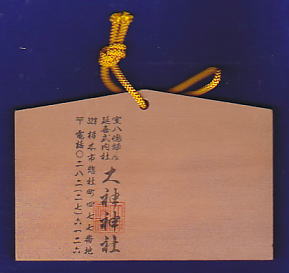 室八嶋
延喜式内社
大神神社
栃木市惣社町四七七番地
〒電話〇二八二(二七)六一二六